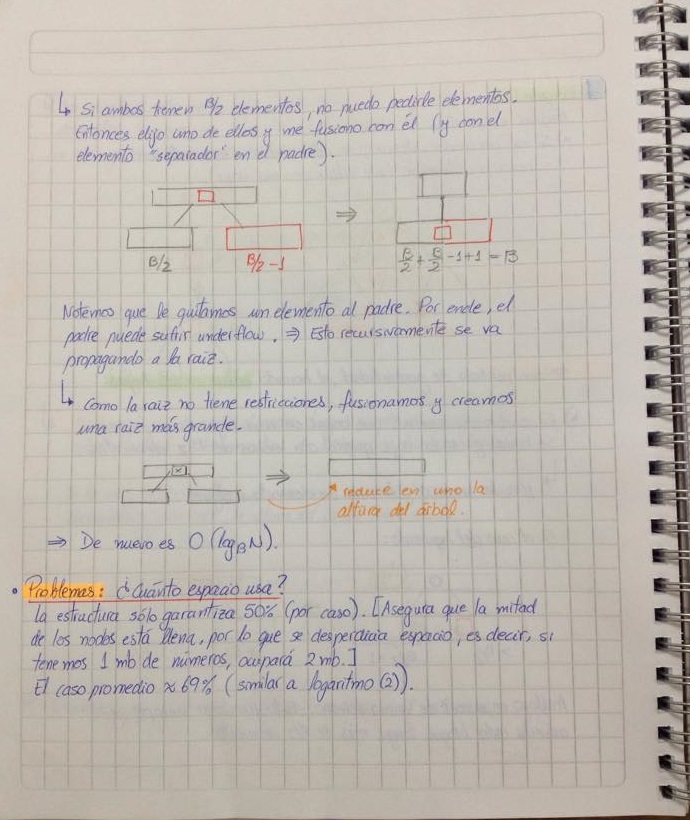 ↳ Si ambos tienen B/2 elementos, no puedo pedirle elementos.
Entonces elijo uno de ellos y me fusiono con él (y con el
elemento "separador" en el padre).
⇒
B/2 B/2-1 B/2 + B/2 -1+1 = B
Notemos que le quitamos un elemento al padre. Por ende, el
padre puede sufrir underflow. ⇒ Esto recursivamente se va
propagando a la raiz.
↳ Como la raiz no tiene restricciones, fusionamos y creamos
una raiz más grande.
x ⇒
reduce en uno la
altura del árbol.
⇒ De nuevo es O(log_B N).
• Problemas: ¿Cuánto espacio usa?
La estructura sólo garantiza 50% (por caso). [Asegura que la mitad
de los nodos está llena, por lo que se desperdicia espacio, es decir, si
tenemos 1 mb de números, ocupará 2 mb.]
El caso promedio ≈ 69% (similar a logaritmo (2)).